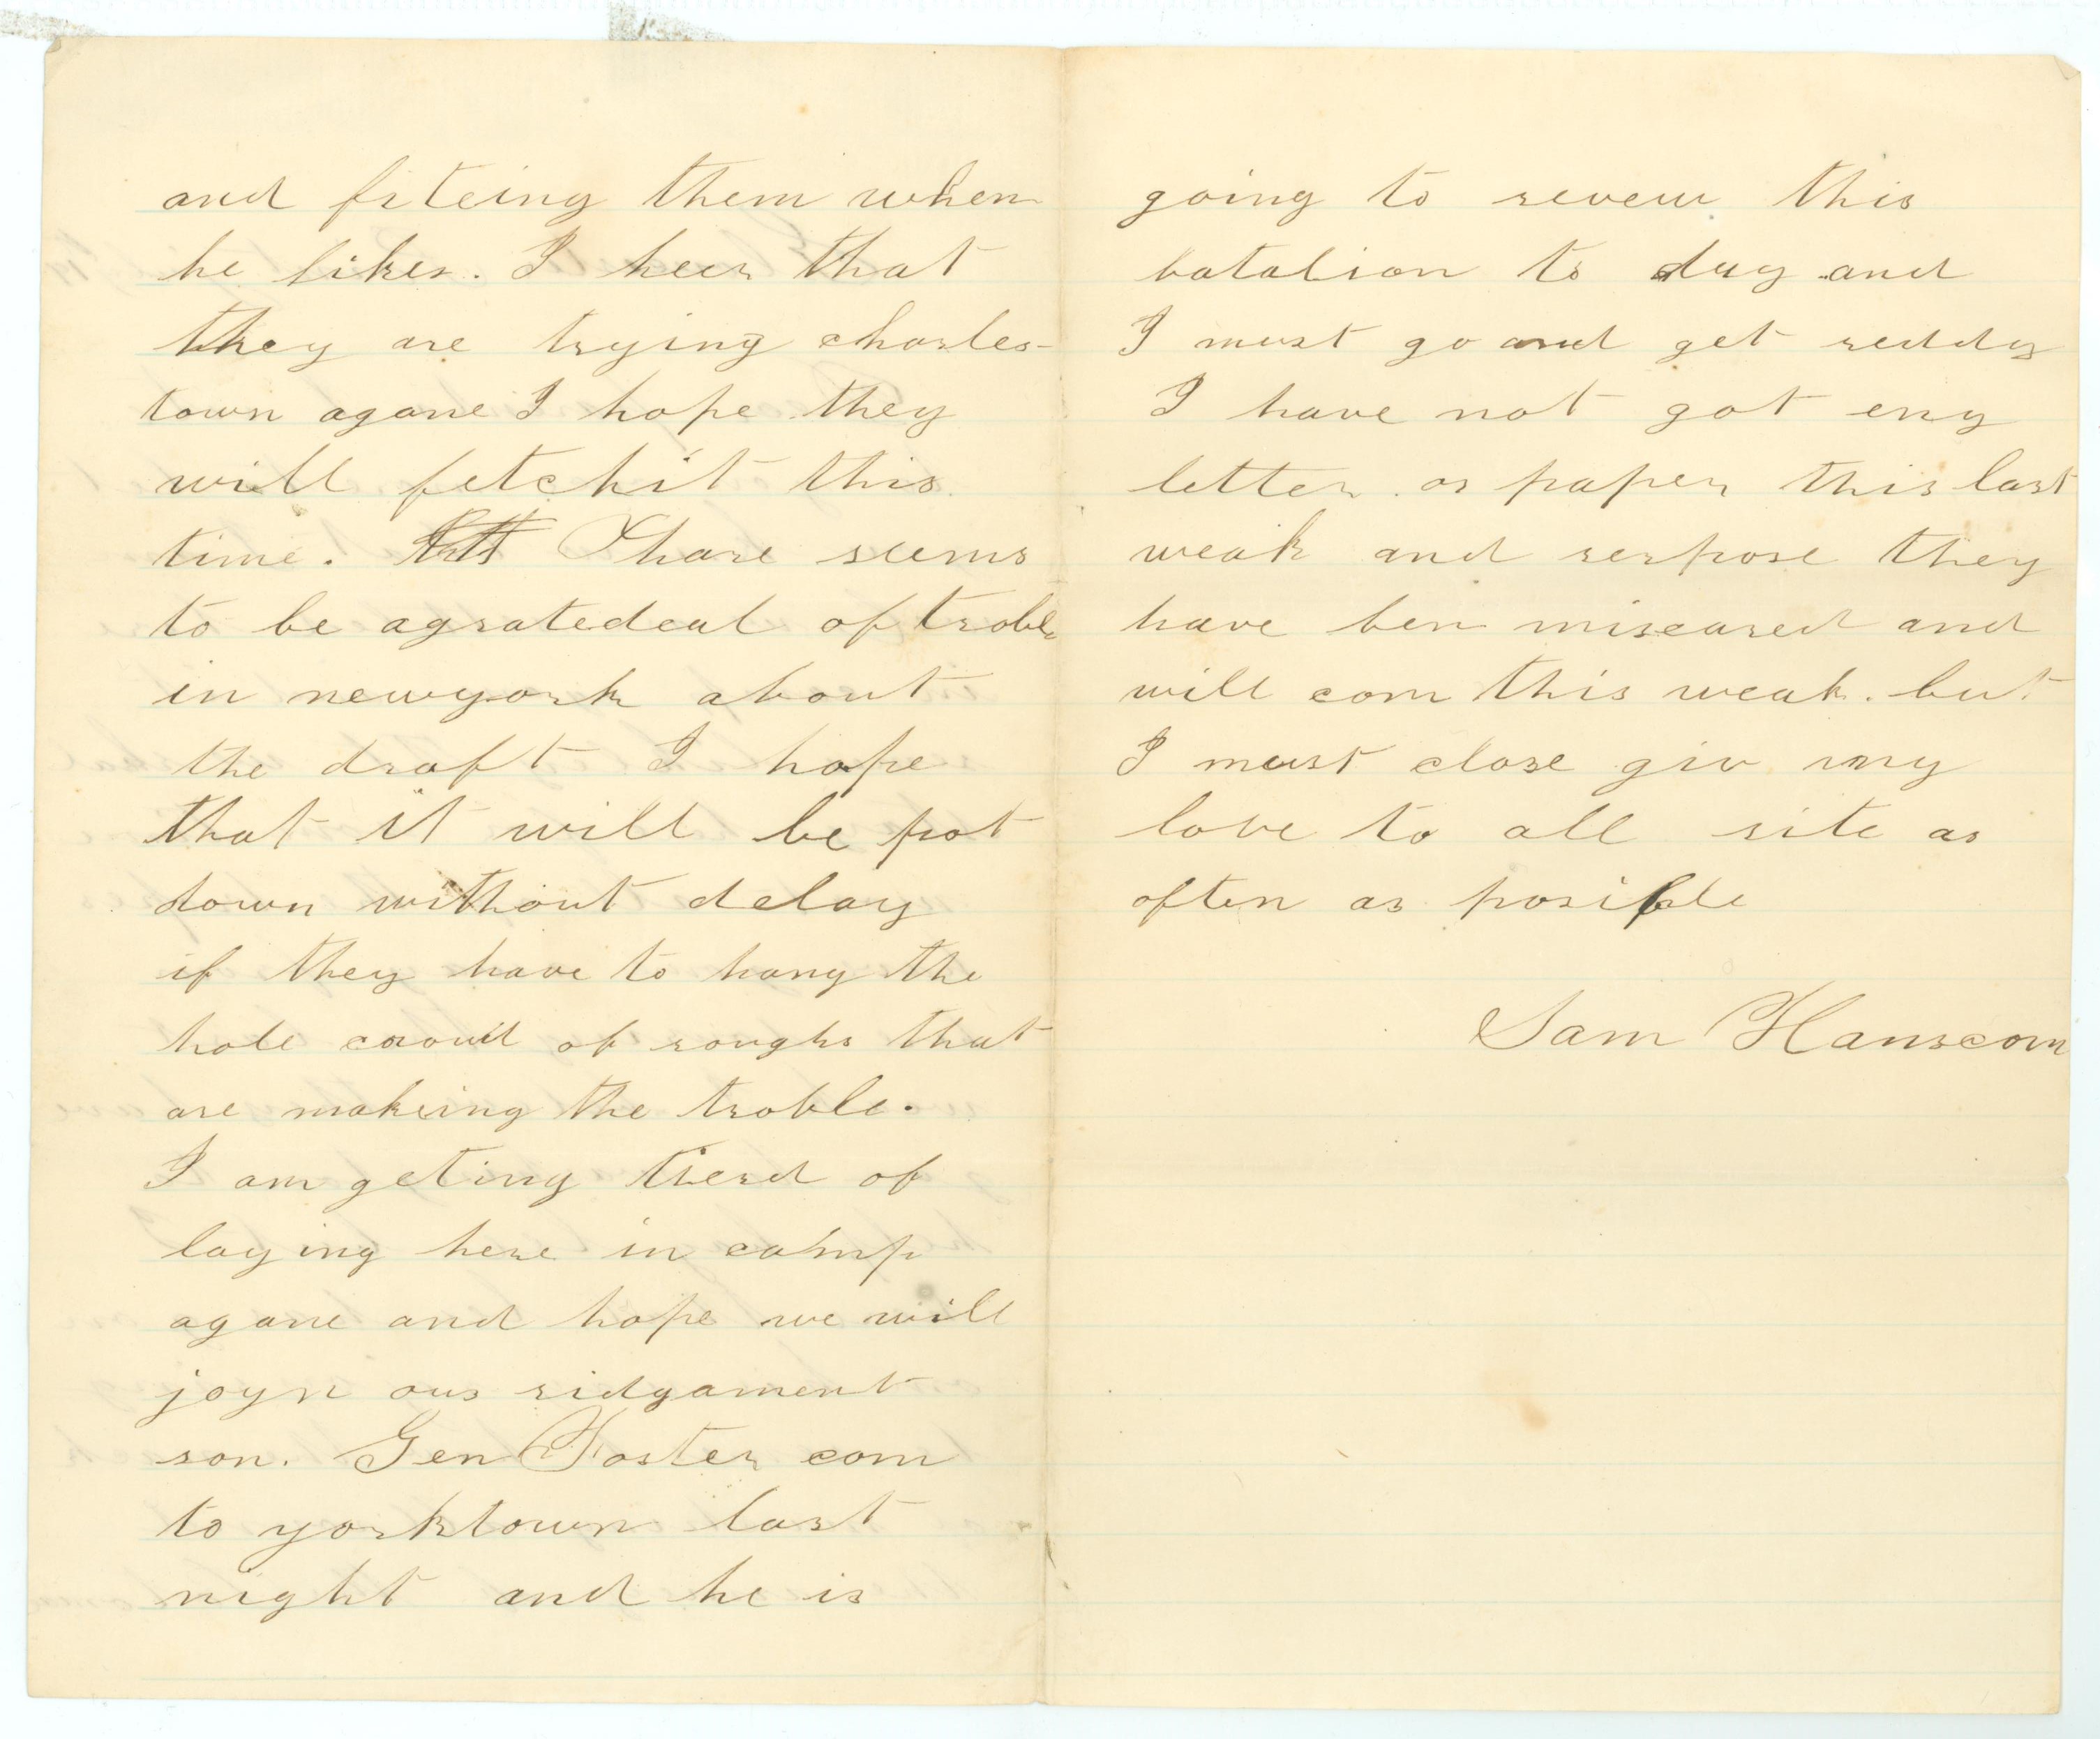 and fiteing them when
he likes. I heer that
they are trying charles-
town agane I hope they
will fetchit this
time. Thare seems
to be agratedeal of troble
in newyork about
the draft I hope
that it will be pot
down without delay
if they have to hang the
hole croud of roughs that
are makeing the troble.
I am geting tierd of
laying here in camp
agane and hope we will
joyn our ridgament
son. Gen Foster com
to yorktown last
night and he is
going to revew this
batalion to day and
I must go and get reddy
I have not got eny
letter or paper this last
weak and serpose they
have ben miscared and
will com this weak. but
I must close giv my
love to all rite as
often as posible
Sam Hanscom